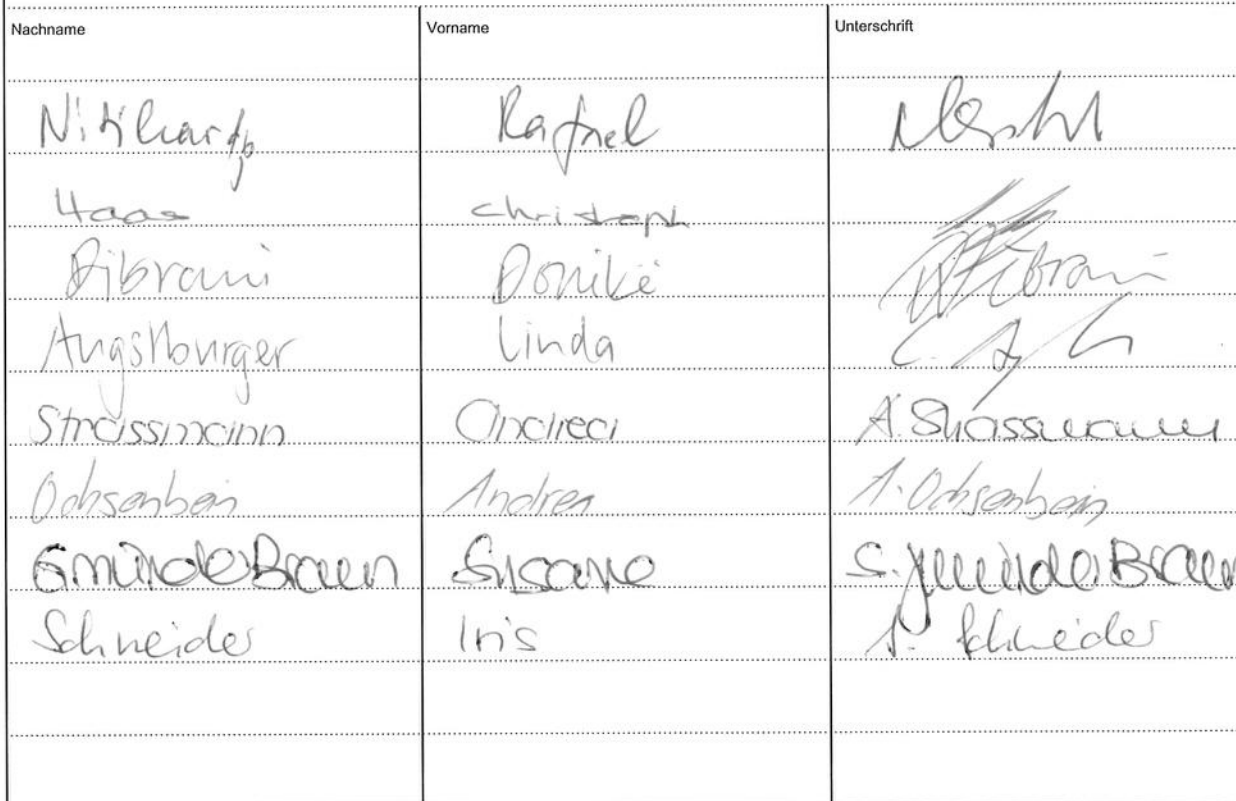 Nachname Vorname Unterschrift
Rafael
Haas Christoph
Dibrani Donikë Dibrani
Augstburger Linda
Strassmann Andrea A. Strassmann
Ochsenbein Andrea A. Ochsenbein
Gmünder Braun Susanne S. Gmünder Braun
Schneider Iris I. Schneider